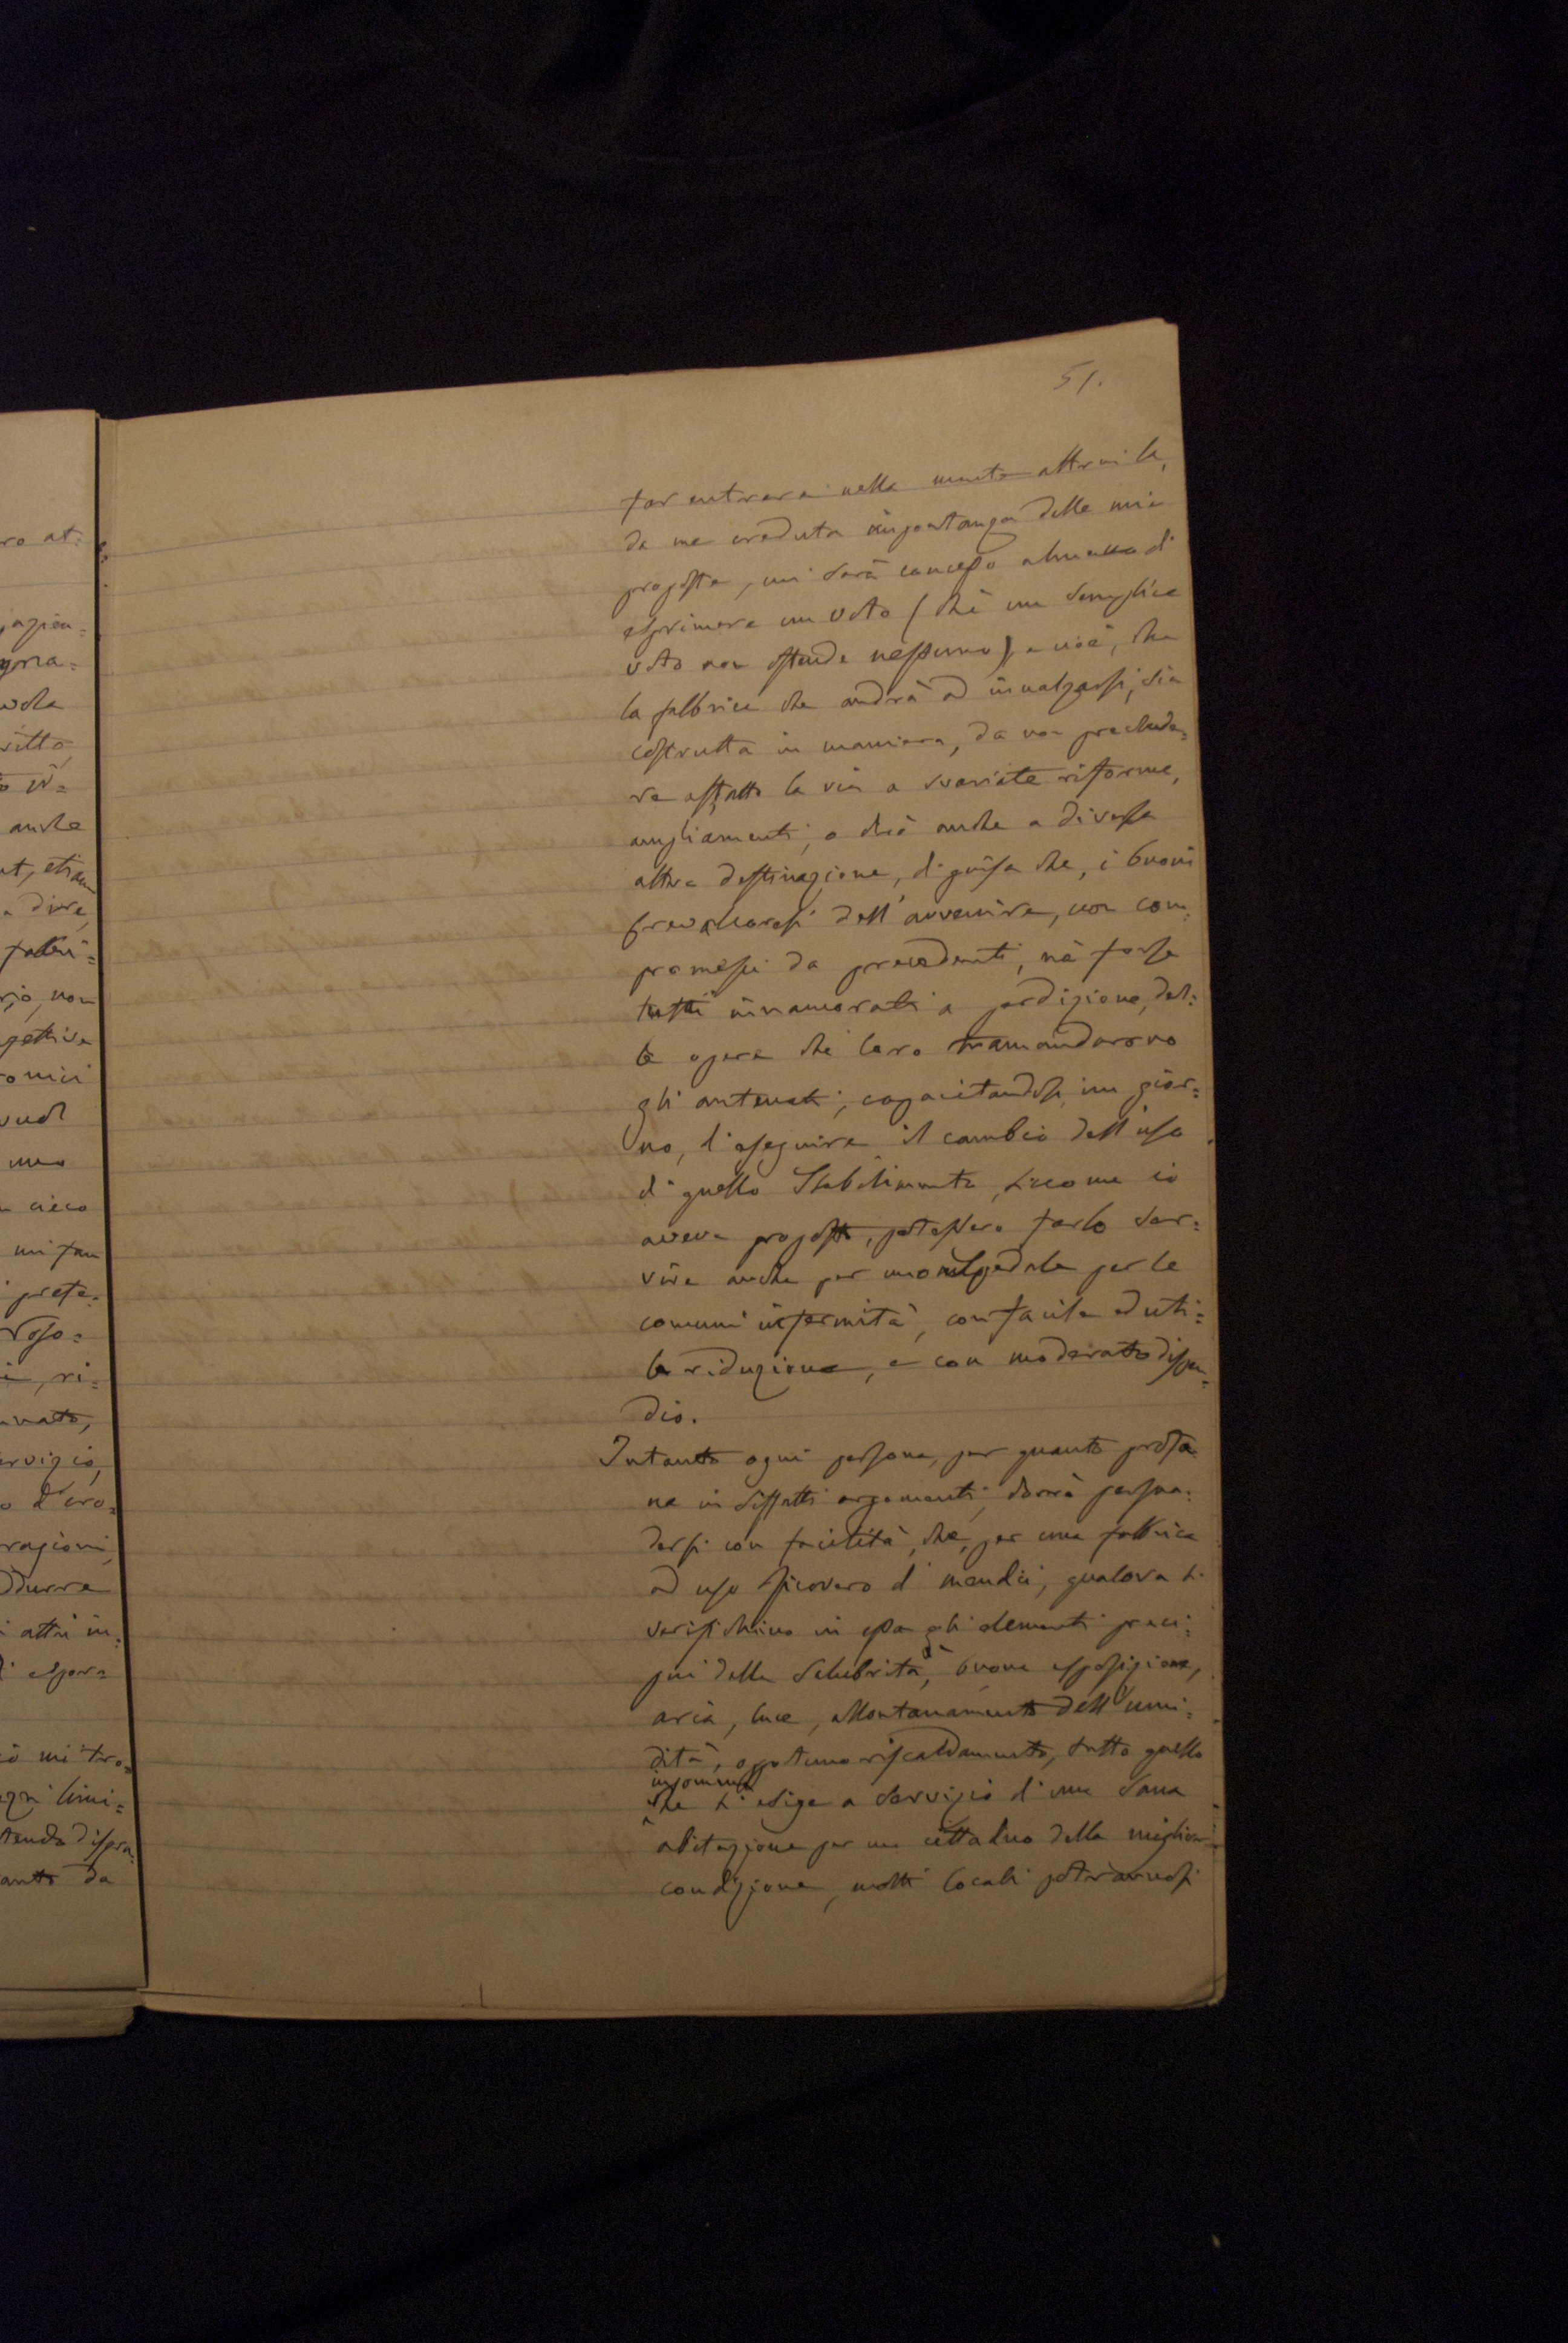 ro at:
gna:
ritto
anche
a dire,
fabbri=
rio, non
gettiva
omici
cieco
mi fan
prete=
ri=
nato,
ervizio,
ragioni
durre
altri in=
mi tro=
ogni limi=
da
51.
far entrare nella mente altrui la,
da me creduta importanza delle mie
proposte, mi sarà concesso almeno di
esprimere un voto (chè un semplice
voto non offende nessuno), e cioè, che
la fabbrica che andrà ad innalzarsi, sia
costrutta in maniera, da non preclude=
re affatto la via a svariate riforme,
ampliamenti, o chè anche a diversa
altra destinazione, di guisa che, i buoni
dell'avvenire, non com=
promessi da precedenti, nè forse
tutti innamorati a perdizione, del=
le opere che loro tramandarono
gli antenati, capacitandosi, un gior=
no, d'eseguire il cambio dell'uso
di quello Stabilimento, siccome io
aveva proposto, potessero farlo ser=
vire anche per uno Ospedale per le
comuni infermità, con facile ed uti=
le riduzione, e con moderato dispen=
dio.
Intanto ogni persona, per quanto profa
na in siffatti argomenti, dovrà persua=
dersi con facilità, che, per una fabbrica
ad uso Ricovero di mendici, qualora si
verifichino in essa gli elementi preci=
pui della salubrità, buona esposizione,
aria, luce, allontanamento dell'umi=
dità, opportuno riscaldamento, tutto quello
insomma
che si esige a servizio di una sana
abitazione per un cittadino della miglior
condizione, molti locali potrannosi